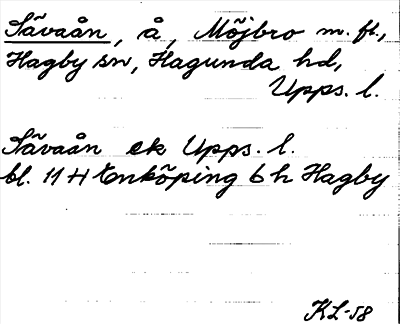 Sävaån, å, Möjbro m.fl.,
Hagby sn, Hagunda hd,
Upps. l.
Sävaån ek Upps. l.
bl. 11 H Enköping 6 h Hagby
KL-58